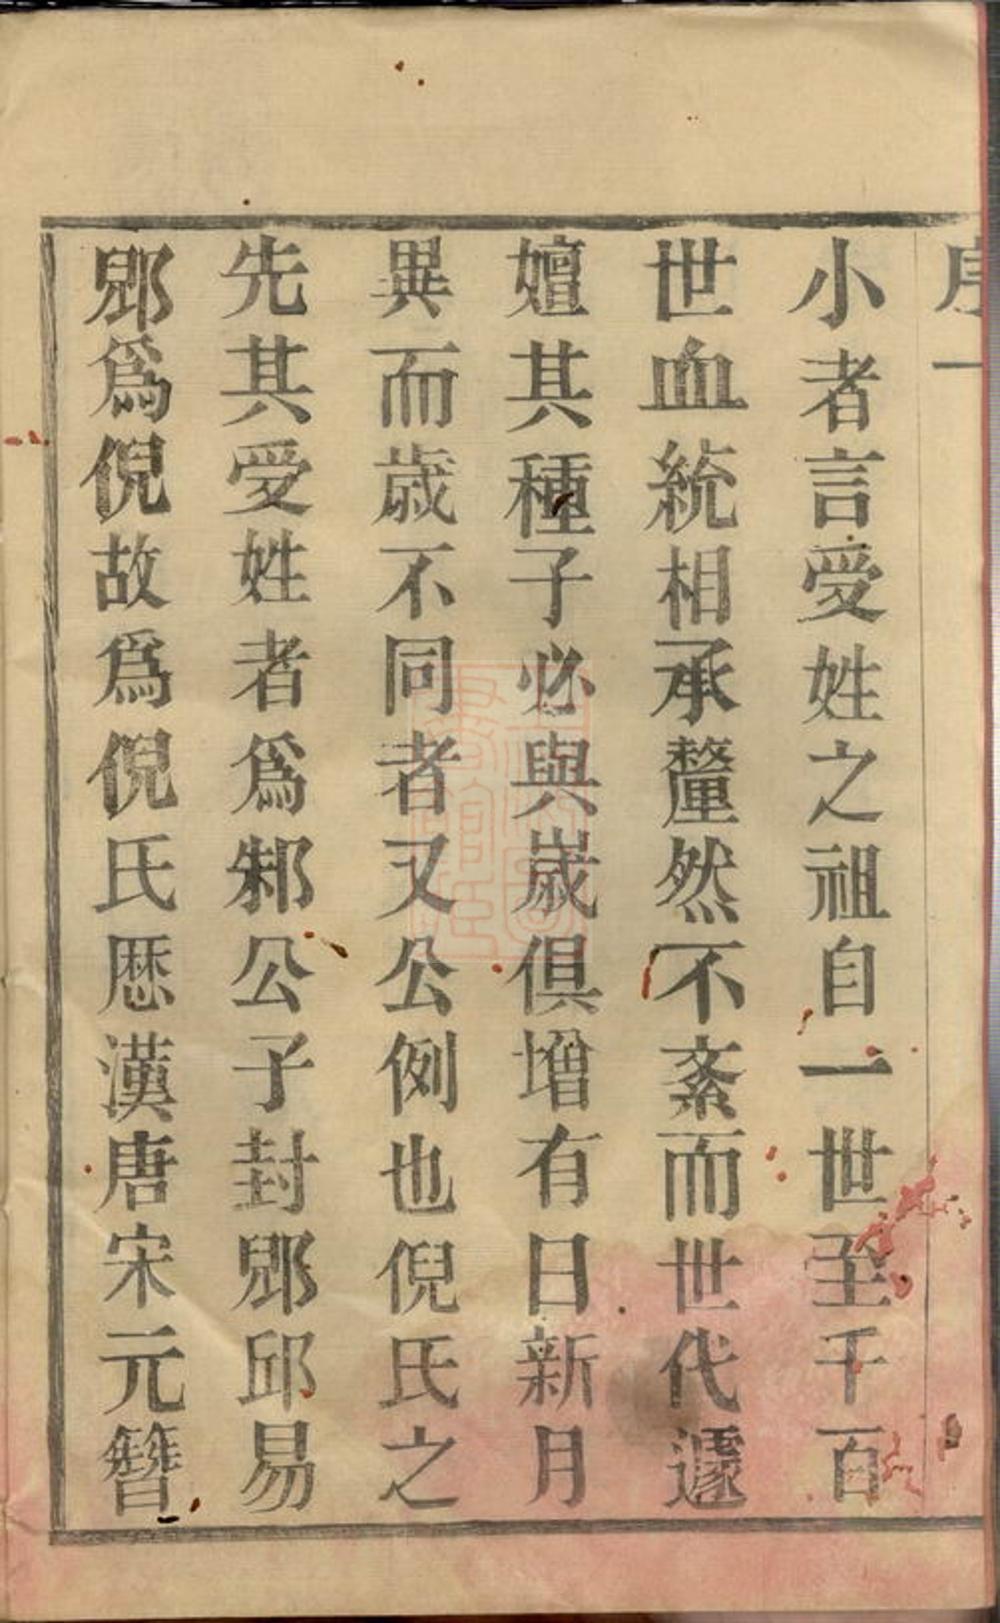 序一
小者言受姓之祖自一世至千百
世血統相承釐然不紊而世代遞
嬗其種子必與歲俱增有日新月
異而歲不同者又公例也倪氏之
先其受姓者為邾公子封郳邱易
郳爲倪故爲倪氏歴漢唐宋元簪